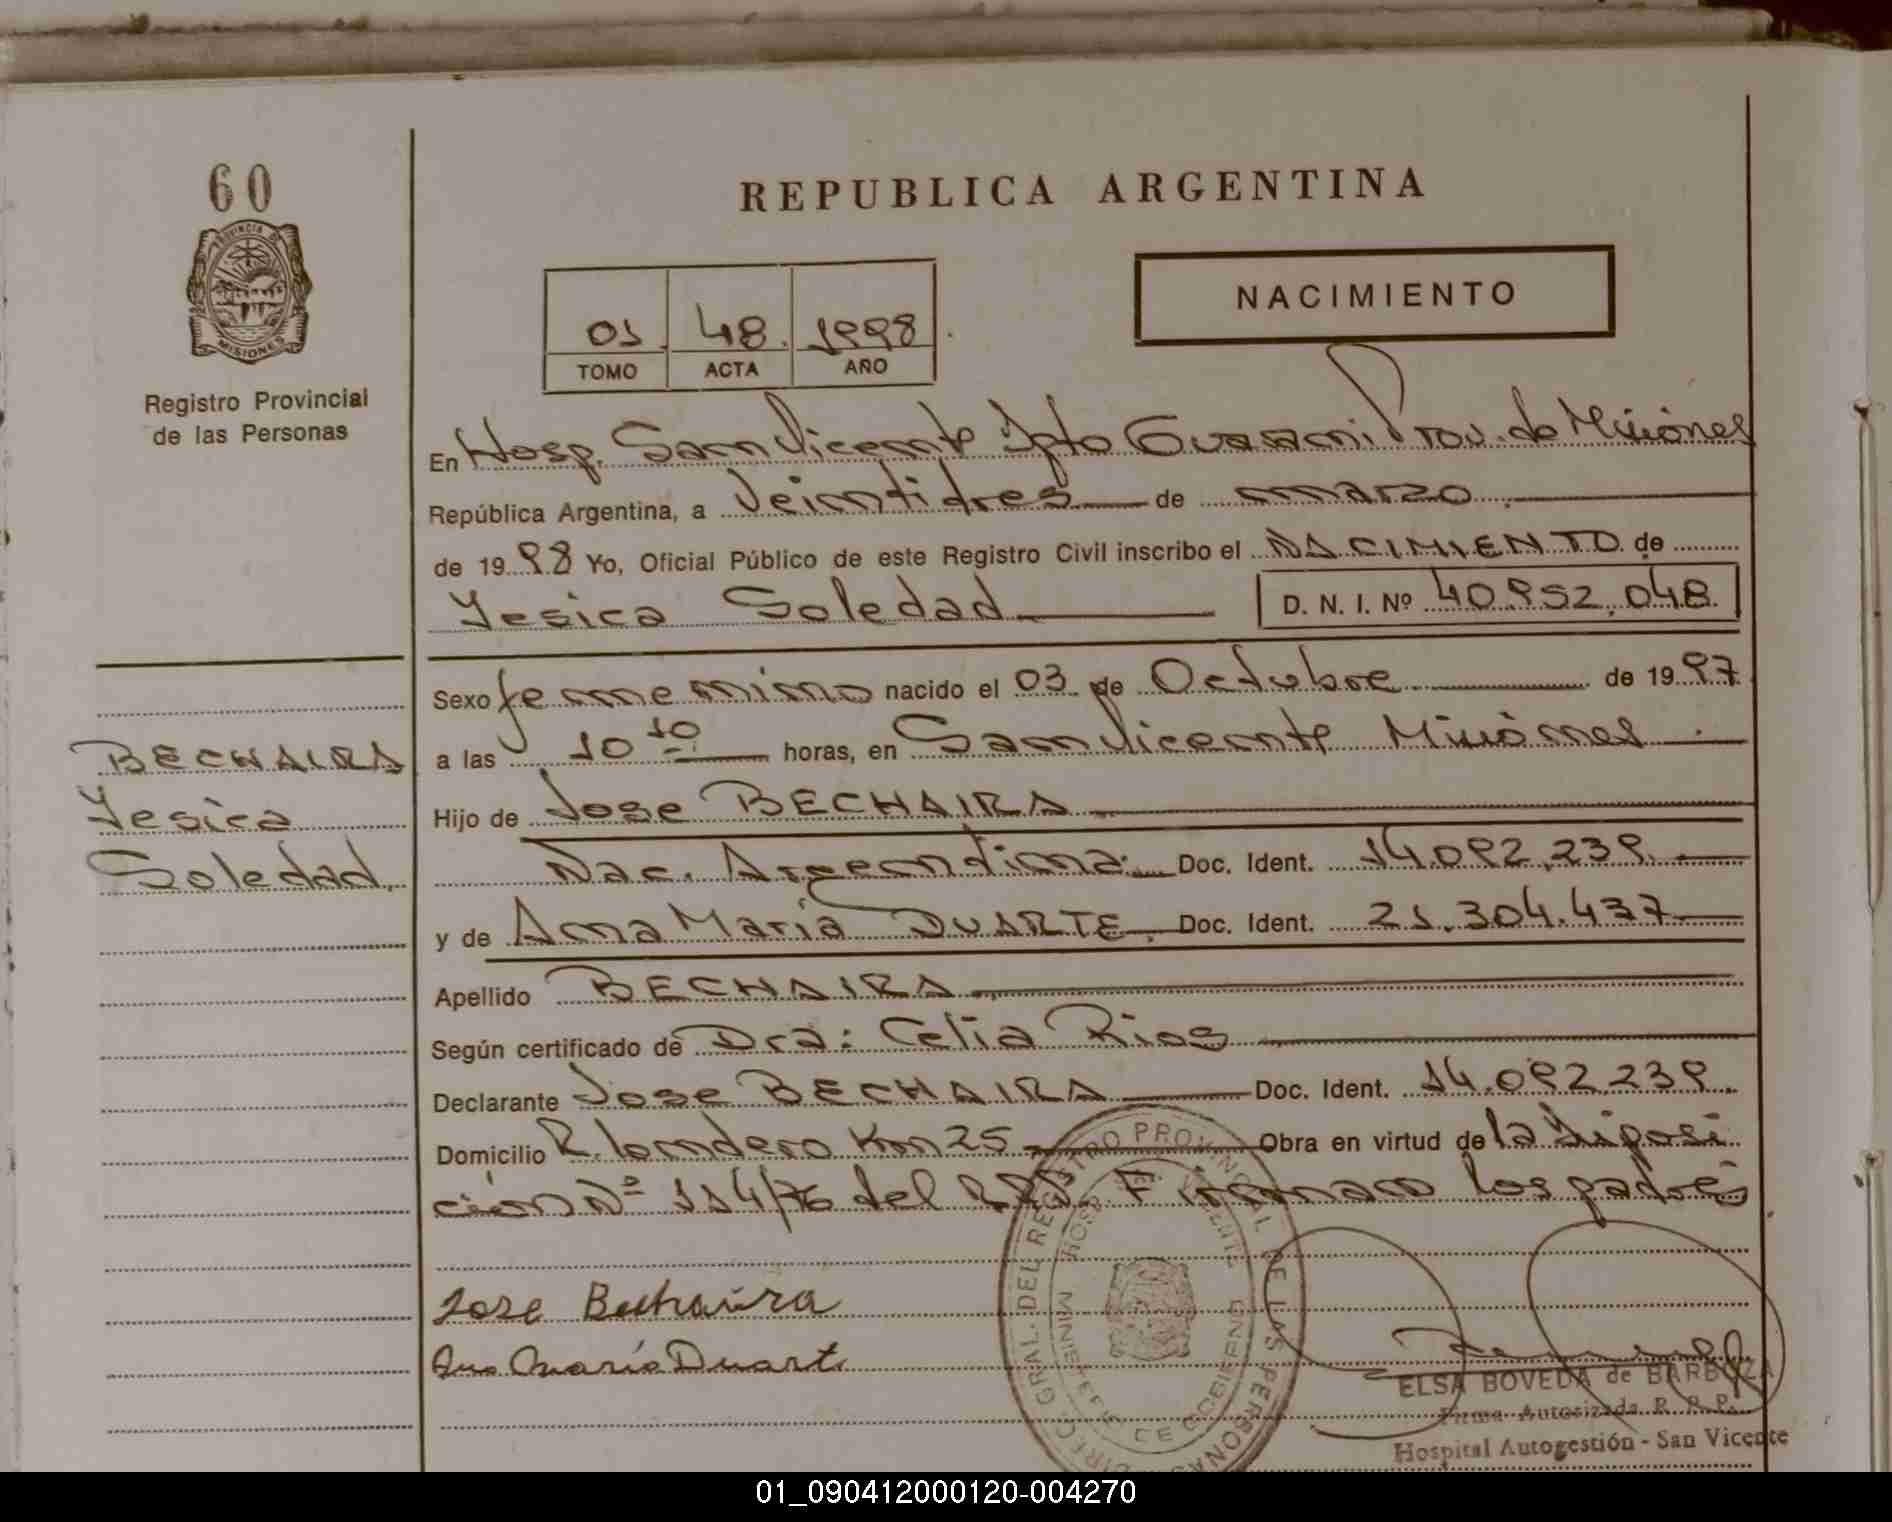 60
PROVINCIA DE
MISIONES
Registro Provincial
de las Personas
REPUBLICA ARGENTINA
NACIMIENTO
01 48 1998
TOMO ACTA AÑO
En Hosp. San Vicente Dpto Guarani Prov. de Misiones
República Argentina, a Veintitres de marzo
de 1998 Yo, Oficial Público de este Registro Civil inscribo el NACIMIENTO de
Yesica Soledad D. N. I. Nº 40.952.048
Sexo femenino nacido el 03 de Octubre de 1997
a las 10 10 horas, en San Vicente Misiones
Hijo de Jose BECHAIRA
Nac. Argentina Doc. Ident. 14.092.239
y de Ana Maria DUARTE Doc. Ident. 21.304.437
Apellido BECHAIRA
Según certificado de Dra: Celia Rios
Declarante Jose BECHAIRA Doc. Ident. 14.092.239
Domicilio R. londero Km 25 Obra en virtud de la Disposi
ción Nº 114/76 del R.P.P. Firman los padres
BECHAIRA
Yesica
Soledad
Jose Bechaira
Ana Maria Duarte
DIREC. GRAL. DEL REGISTRO PROVINCIAL DE LAS PERSONAS
MINISTERIO DE GOBIERNO
ELSA BOVEDA de BARBOZA
Firma Autorizada R. P. P.
Hospital Autogestión - San Vicente
01_090412000120-004270